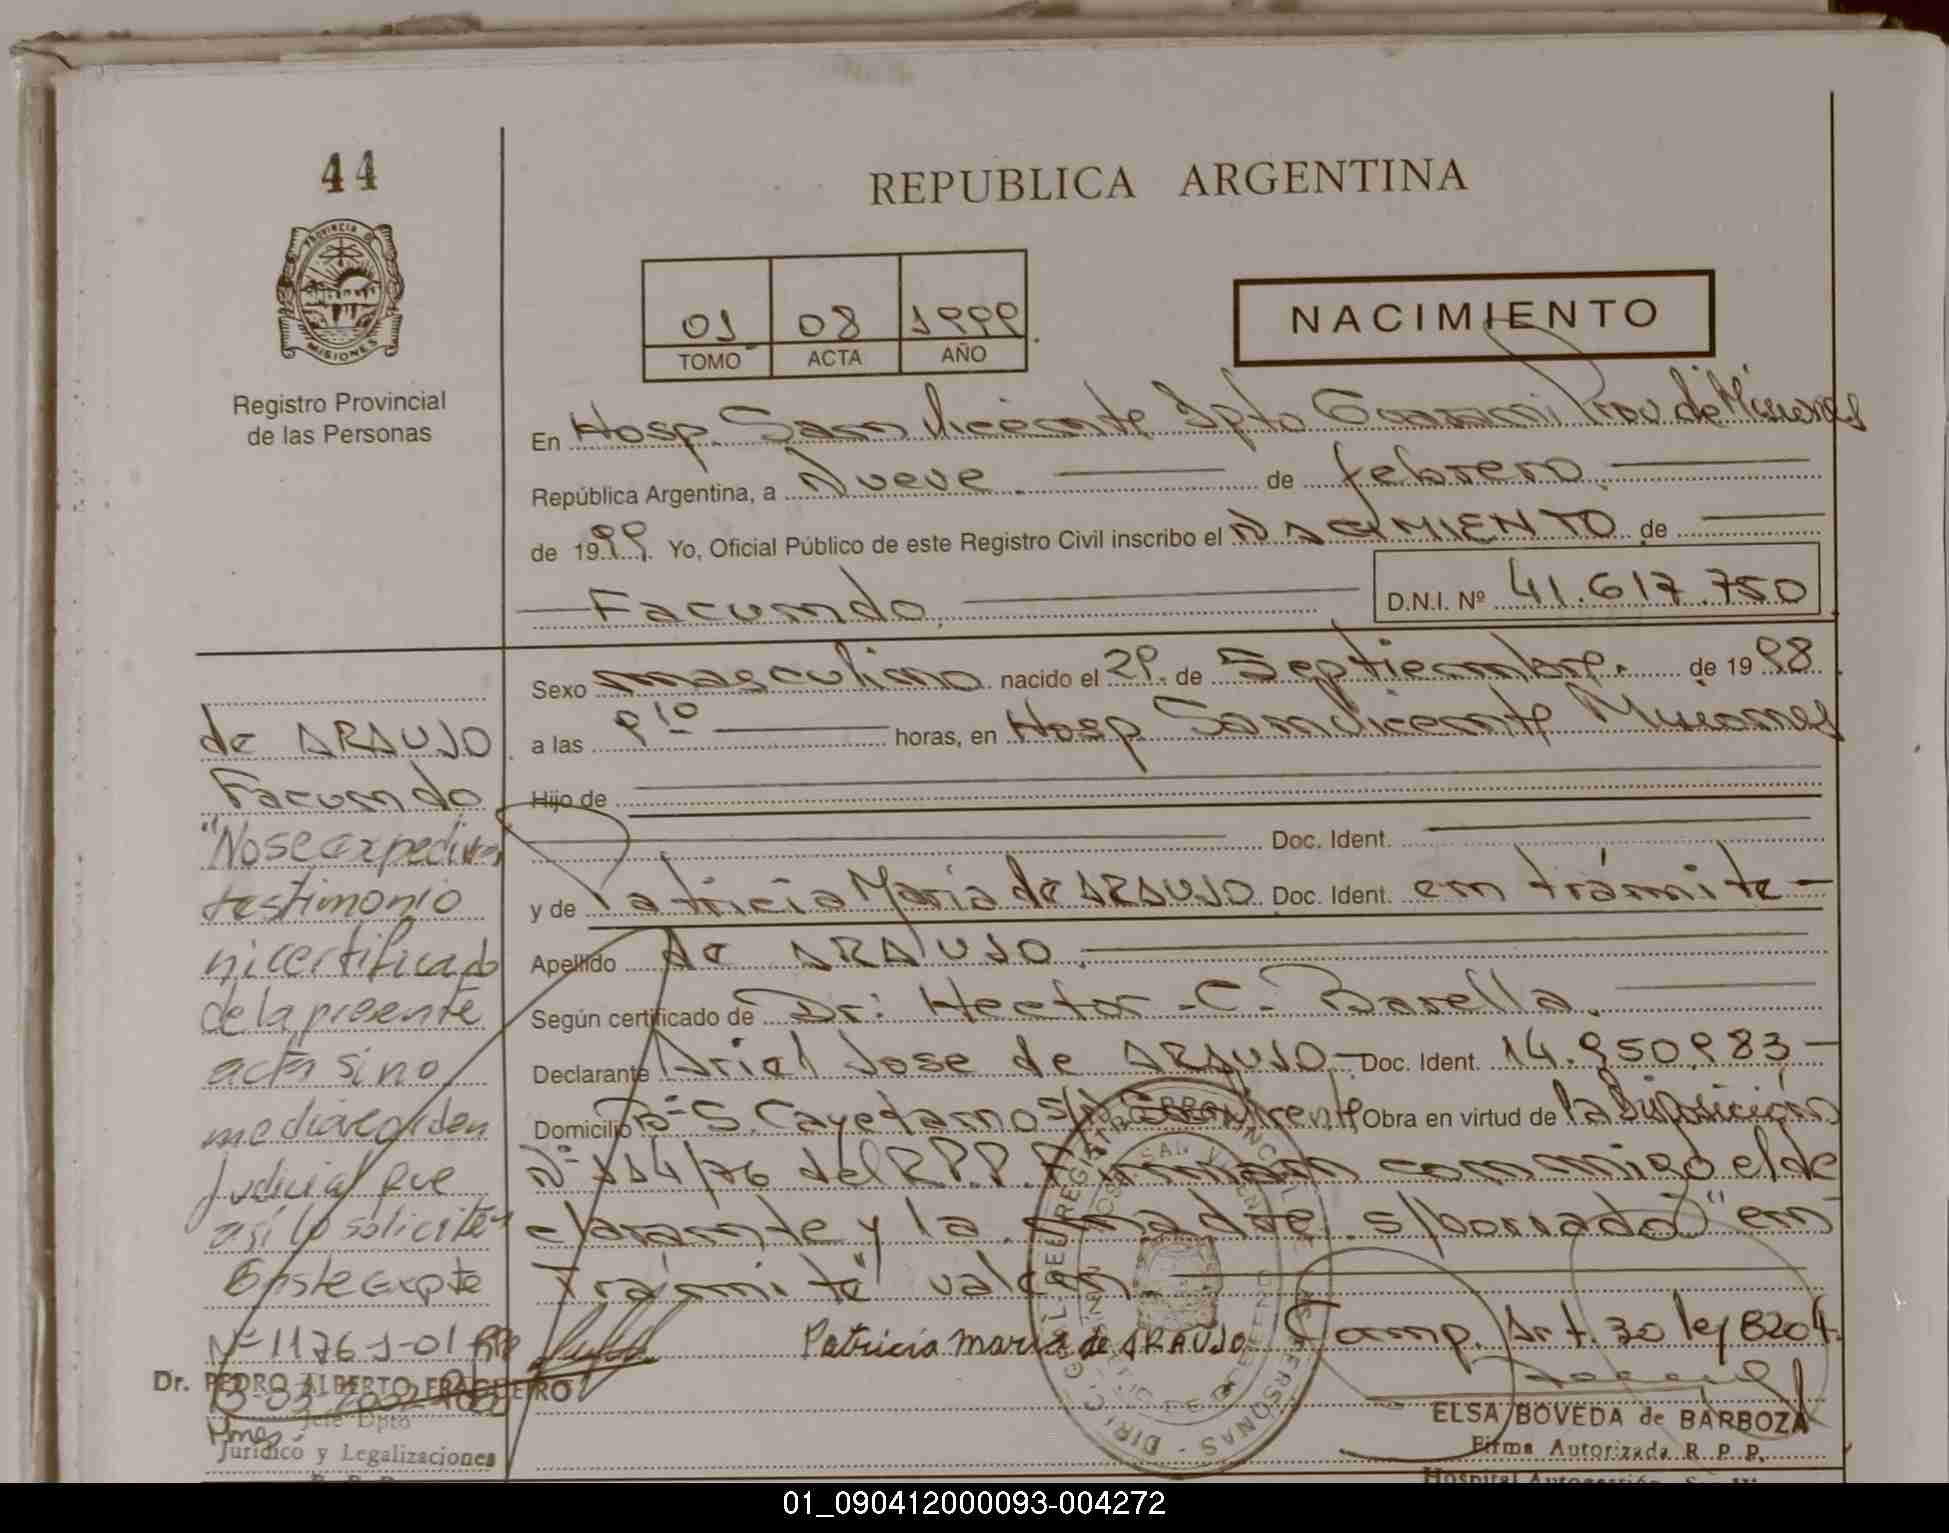 44
REPUBLICA ARGENTINA
PROVINCIA DE
MISIONES
Registro Provincial
de las Personas
01 08 1999
TOMO ACTA AÑO
NACIMIENTO
En Hosp. San Vicente Dpto Guaraní Prov. de Misiones
República Argentina, a Nueve de febrero.
de 1999. Yo, Oficial Público de este Registro Civil inscribo el NACIMIENTO de
Facundo. D.N.I. Nº 41.617.750
Sexo masculino nacido el 29. de Septiembre. de 1998
a las 9/0 horas, en Hosp San Vicente Misiones
Hijo de
Doc. Ident.
y de Patricia María de ARAUJO Doc. Ident. en trámite -
Apellido de ARAUJO.
Según certificado de Dr: Hector - C - Barella.
Declarante Ariel Jose de ARAUJO - Doc. Ident. 14.950.983 -
Domicilio Bº S. Cayetano s/n San Vicente Obra en virtud de la Disposición
Nº 114/76 del R.P.P. Firman conmigo el de
clarante y la madre. s/borrado "en
Trámite" valen.
Patricia maria de ARAUJO Comp. Art. 30 ley 8204.
ELSA BOVEDA de BARBOZA
Firma Autorizada R. P. P.
de ARAUJO
Facundo
"No se expedirá
testimonio
ni certificado
de la presente
acta sino
mediare orden
Judicial que
así lo solicite"
Expte
Nº 1176-J-01 RPP
Dr. PEDRO ALBERTO FRAGUEIRO
13-03-2002
Jefe Dpto
Jurídico y Legalizaciones
R. P. P.
01_090412000093-004272